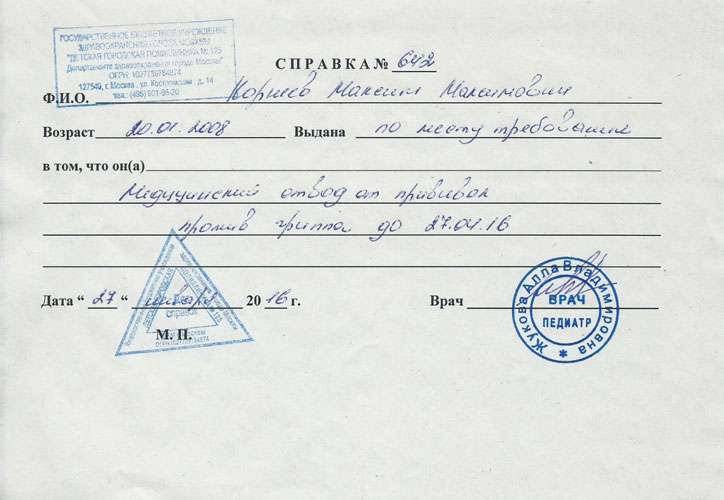 ГОСУДАРСТВЕННОЕ БЮДЖЕТНОЕ УЧРЕЖДЕНИЕ
ЗДРАВООХРАНЕНИЯ ГОРОДА МОСКВЫ
"ДЕТСКАЯ ГОРОДСКАЯ ПОЛИКЛИНИКА № 125
Департамента здравоохранения города Москвы"
127549, г. Москва, ул. Костромская, д. 14
СПРАВКА № 642
Ф.И.О. Максим Максимович
Возраст 20.01.2008 Выдана по месту требования
в том, что он(а)
Медицинский отвод от прививок
против гриппа до 27.04.16
Дата " 27 " января 2016 г. Врач
Для справок
М. П.
Жукова Алла Владимировна
ВРАЧ
ПЕДИАТР